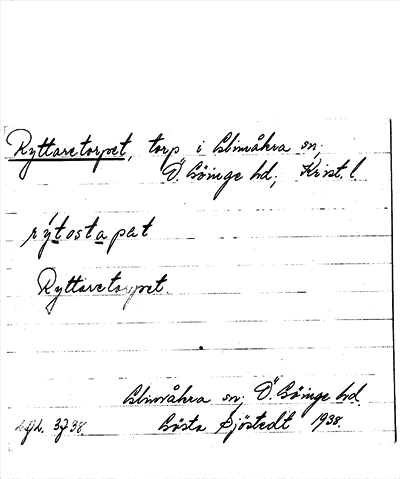 Ryttaretorpet, torp i Glimåkra sn;
Ö. Göinge hd; Krist. l
rýtostapat
Ryttaretorpet.
Glimåkra sn; Ö. Göinge hd.
Gösta Sjöstedt 1938.